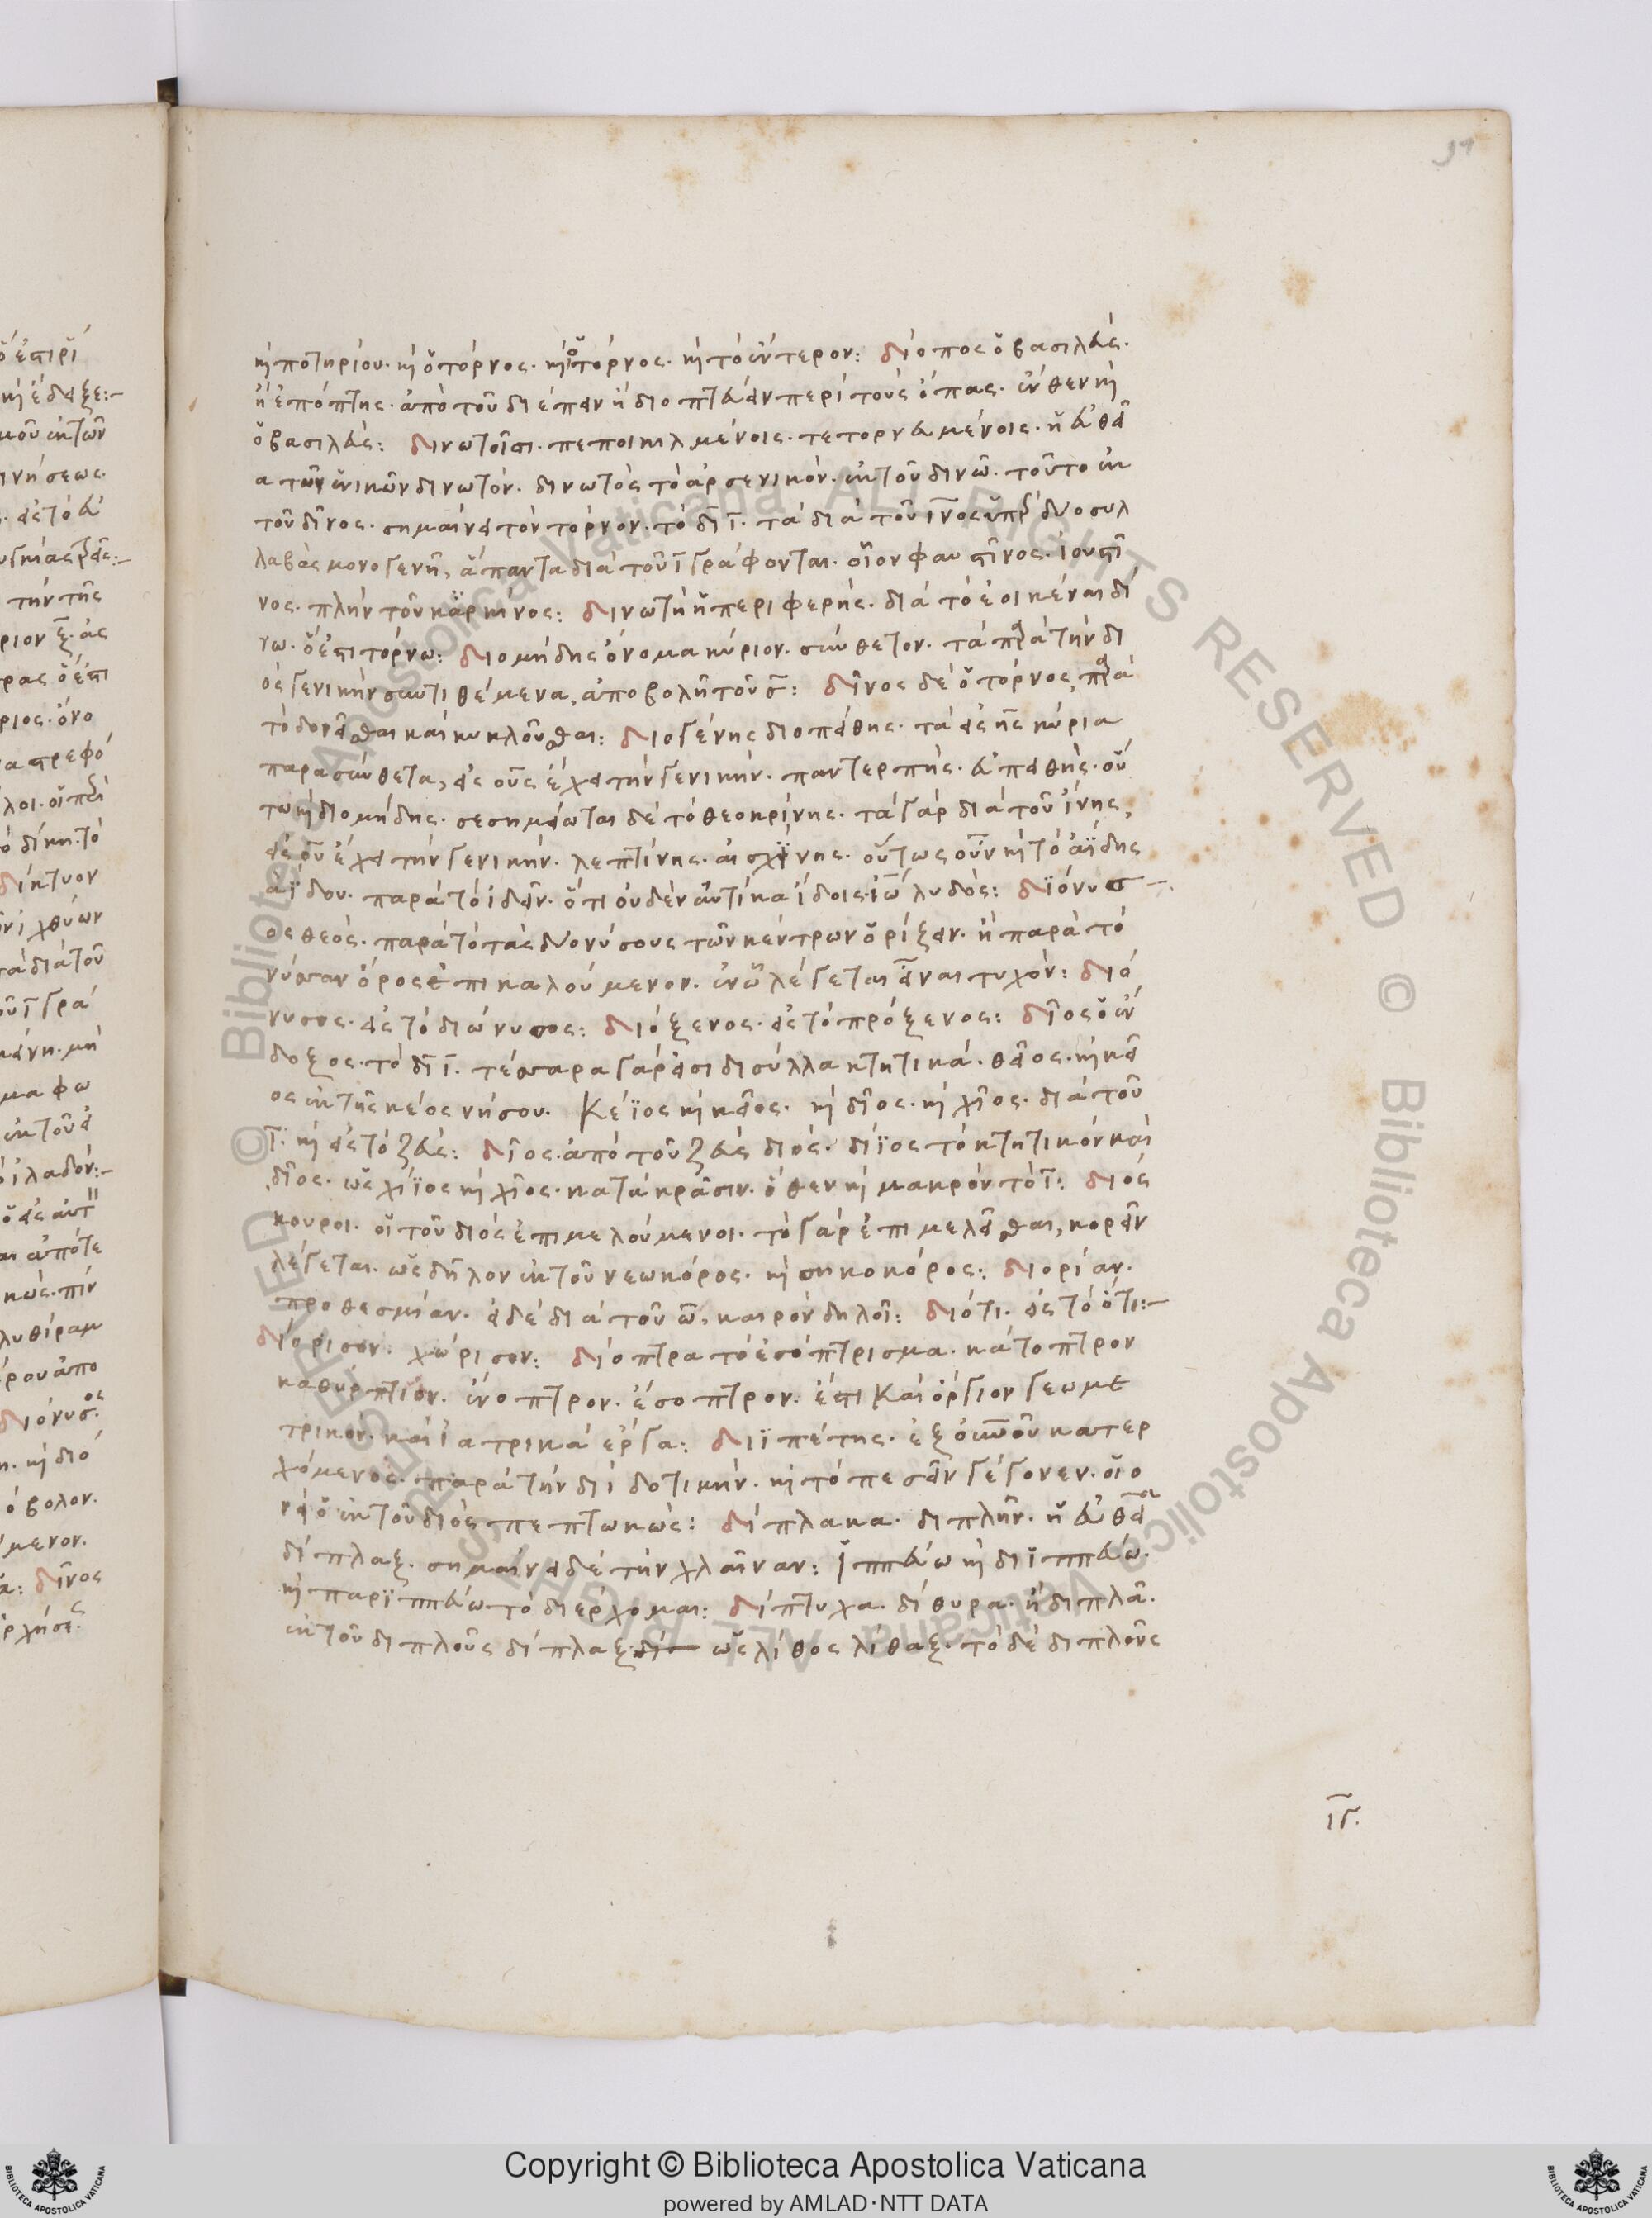 καὶ ποτηρίου. καὶ ὁ τόρνος. καὶ ὁ τόρνος. καὶ τὸ ἔντερον: δίοπος ὁ βασιλεύς.
ἢ ἐπόπτης. ἀπὸ τοῦ διέπειν ἢ διοπτεύειν περὶ τοὺς ὄπας. ἔνθεν καὶ
ὁ βασιλεύς: δινωτοῖσι. πεποικιλμένοις. τετορνευμένοις. ἡ εὐθεῖ
α τῶν ἑνικῶν δινωτόν. δινωτὸς τὸ ἀρσενικόν. ἐκ τοῦ δινῶ. τοῦτο ἐκ
τοῦ δῖνος. σημαίνει τὸν τόρνον. τὸ δῑ ῑ. τὰ διὰ τοῦ ῑνος ὑπὲρ δύο συλ
λαβὰς μονογενῆ, ἅπαντα διὰ τοῦ ῑ γράφονται. οἷον φαυστῖνος. ἰουστῖ
νος. πλὴν τοῦ κάρκινος: δινωτὴ ἡ περιφερής. διὰ τὸ ἐοικέναι δί
νω. ὅ ἐστι τόρνω: διομήδης ὄνομα κύριον. σύνθετον. τὰ παρὰ τὴν δι
ὸς γενικὴν συντιθέμενα, ἀποβολῇ τοῦ σ̄: δῖνος δὲ ὁ τόρνος, παρὰ
τὸ δονεῖσθαι καὶ κυκλοῦσθαι: διογένης διοπείθης. τὰ εἰς ης κύρια
παρασύνθετα, εἰς ους ἔχει τὴν γενικήν. παντερπής. εὐπειθής. οὕ
τω καὶ διομήδης. σεσημείωται δὲ τὸ θεοκρίνης. τὰ γὰρ διὰ τοῦ ίνης,
εἰς ου ἔχει τὴν γενικήν. λεπτίνης. αἰσχίνης. οὕτως οὖν καὶ τὸ ἀΐδης
ἀΐδου. παρὰ τὸ ἰδεῖν. ὅτι οὐδὲν αὐτίκα ἴδοις. λυδός: διόνυσ
ος θεός. παρὰ τὸ τὰς δονύσους τῶν κέντρων ὁρίζειν. ἢ παρὰ τὸ
νύσσαν ὄρος ἐπικαλούμενον. ἐν ᾧ λέγεται εἶναι τυχόν: διό
νυσος. εἰς τὸ διώνυσος: διόξενος. εἰς τὸ πρόξενος: δῖος ὁ ἔν
δοξος. τὸ δῑ ῑ. τέσσαρα γάρ εἰσι δισύλλα κτητικά. θεῖος. καὶ κεῖ
ος ἐκ τῆς κέος νήσου. Κέϊος καὶ κεῖος. καὶ δῖος. καὶ χῖος. διὰ τοῦ
ῑ. καὶ εἰς τὸ ζεύς: δῖος. ἀπὸ τοῦ ζεὺς διός. δίϊος τὸ κτητικὸν καὶ
δῖος. ὡς χίϊος καὶ χῖος. κατὰ κρᾶσιν. ὅθεν καὶ μακρὸν τὸ ῑ: διός
κουροι. οἱ τοῦ διὸς ἐπιμελούμενοι. τὸ γὰρ ἐπιμελεῖσθαι, κορεῖν
λέγεται. ὡς δῆλον ἐκ τοῦ νεωκόρος. καὶ σηκοκόρος: διορίαν.
προθεσμίαν. εἰ δὲ διὰ τοῦ ω̄, καιρὸν δηλοῖ: διότι. εἰς τὸ ὅτι:–
διόρισον. χώρισον: δίοπτρα τὸ ἐσόπτρισμα. κάτοπτρον
ἔνοπτρον. ἔσοπτρον. ἔστι Καὶ ὄργιον γεωμε
τρικόν. καὶ ἰατρικὰ ἔργα: διϊπέτης. ἐξ οὐρανοῦ κατερ
χόμενος. παρὰ τὴν διῒ δοτικήν. καὶ τὸ πεσεῖν γέγονεν. οἱο
νεὶ ὁ ἐκ τοῦ διὸς πεπτωκώς: δίπλακα. διπλῆν. ἡ εὐθεῖα
δίπλαξ. σημαίνει δὲ τὴν χλαῖναν: ἱππεύω καὶ διϊππεύω.
καὶ παριππεύω. τὸ διέρχομαι: δίπτυχα. δίθυρα. ἢ διπλᾶ.
ἐκ τοῦ διπλοῦς δίπλαξ. ὡς λίθος λίθαξ. τὸ δὲ διπλοῦς
ιγ.
Copyright © Biblioteca Apostolica Vaticana
powered by AMLAD·NTT DATA